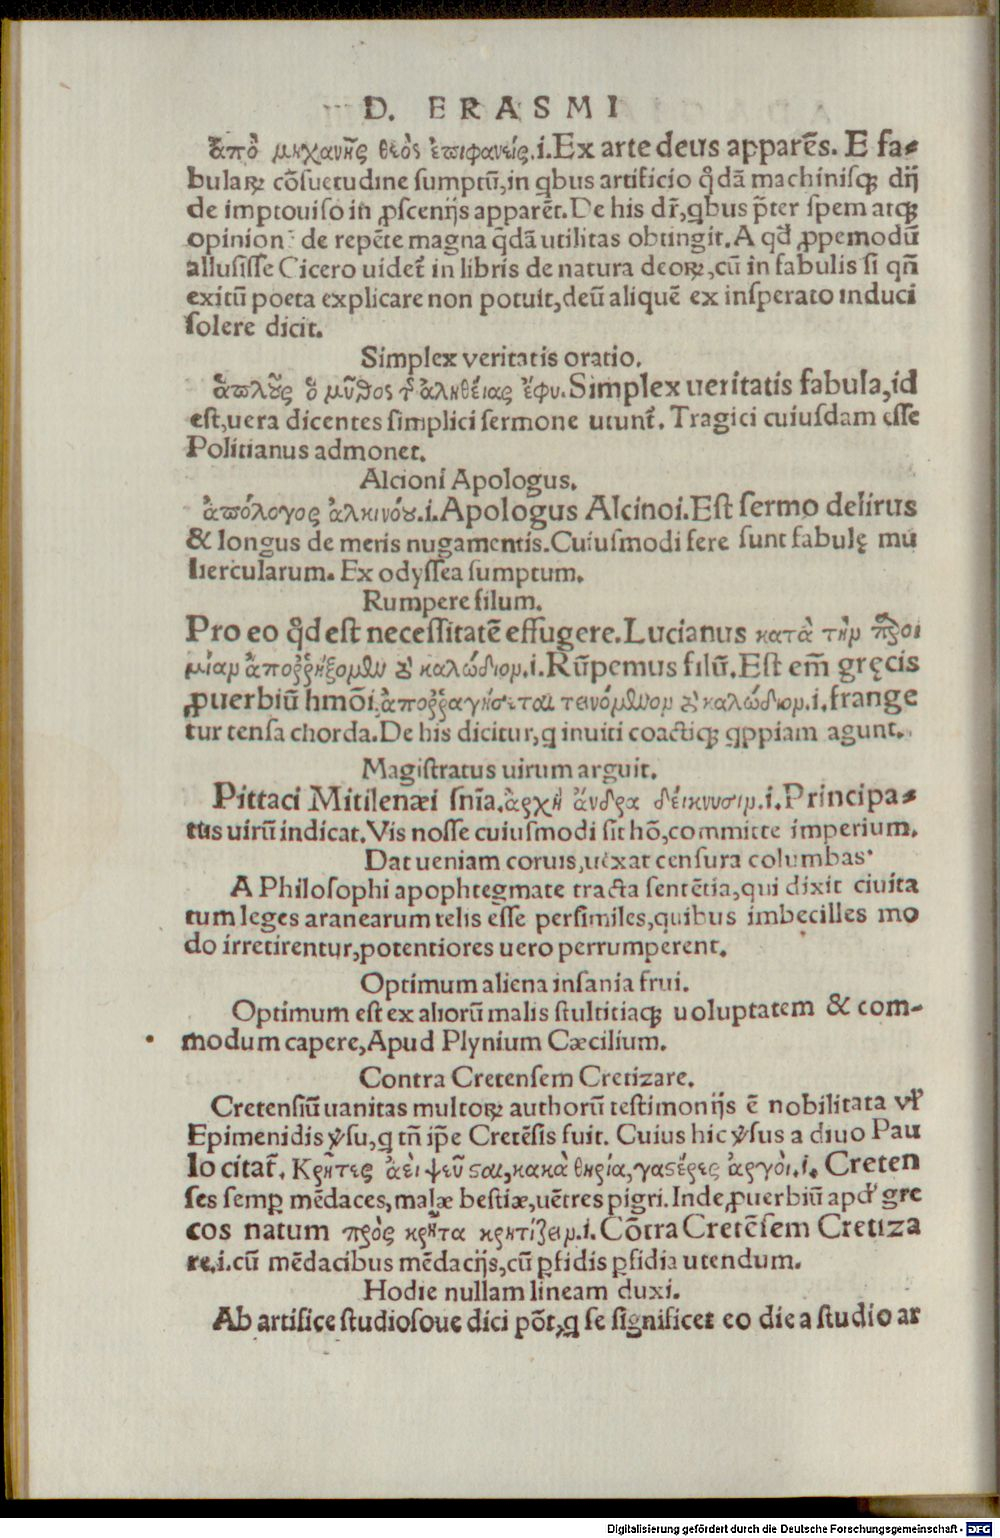 D. ERASMI
ἀπὸ μηχανῆς θεὸς ἐπιφανείς.i.Ex arte deus apparēs. E fa-
bulaꝝ cōsuetudine sumptū,in qbus artificio qdā machinisqꝫ dij
de improuiso in ꝓscenijs apparēt.De his dr̄,qbus p̄ter spem atqꝫ
opinionē de repēte magna qdā utilitas obtingit.A qđ ꝓpemodū
allusisse Cicero uidet̄ in libris de natura deoꝝ,cū in fabulis si qn̄
exitū poeta explicare non potuit,deū aliquē ex insperato induci
solere dicit.
Simplex veritatis oratio.
ἁπλοῦς ὁ μῦθος τ̂ ἀληθείας ἔφυ.Simplex ueritatis fabula,id
est,uera dicentes simplici sermone utunt̄. Tragici cuiusdam esse
Politianus admonet.
Alcioni Apologus.
ἀπόλογος ἀλκινόου.i.Apologus Alcinoi.Est sermo delirus
& longus de meris nugamentis.Cuiusmodi fere sunt fabulę mu
liercularum. Ex odyssea sumptum.
Rumpere filum.
Pro eo qđ est necessitatē effugere.Lucianus κατὰ τὴν παροι
μίαν ἀπορρήξομεν τὸ καλώδιον.i.Rūpemus filū.Est em̄ gręcis
ꝓuerbiū hmōi.ἀπορραγήσεται τεινόμενον τὸ καλώδιον.i.frange
tur tensa chorda.De his dicitur,q inuiti coactiqꝫ qppiam agunt.
Magistratus uirum arguit.
Pittaci Mitilenæi snīa.ἀρχὴ ἄνδρα δείκνυσιν.i.Principa-
tus uirū indicat.Vis nosse cuiusmodi sit hō,committe imperium.
Dat ueniam coruis,uexat censura columbas.
A Philosophi apophtegmate tracta sentētia,qui dixit ciuita
tum leges aranearum telis esse persimiles,quibus imbecilles mo
do irretirentur,potentiores uero perrumperent.
Optimum aliena insania frui.
Optimum est ex aliorū malis stultitiaqꝫ uoluptatem & com-
modum capere,Apud Plynium Cæcilium.
Contra Cretensem Cretizare.
Cretensiū uanitas multoꝝ authorū testimonijs ē nobilitata vł
Epimenidis ṽsu,q tn̄ ip̄e Cretēsis fuit. Cuius hic ṽsus a diuo Pau
lo citat̄. Κρῆτες ἀεὶ ψεῦσαι,κακὰ θηρία,γαστέρες ἀργοὶ.i. Creten
ses semꝑ mēdaces,malæ bestiæ,uētres pigri.Inde ꝓuerbiū apđ gre
cos natum πρὸς κρῆτα κρητίζειν.i.Cōtra Cretēsem Cretiza
re.i.cū mēdacibus mēdacijs,cū ꝑfidis ꝑfidia utendum.
Hodie nullam lineam duxi.
Ab artifice studiosoue dici pōt,q se significet eo die a studio ar
Digitalisierung gefördert durch die Deutsche Forschungsgemeinschaft - DFG